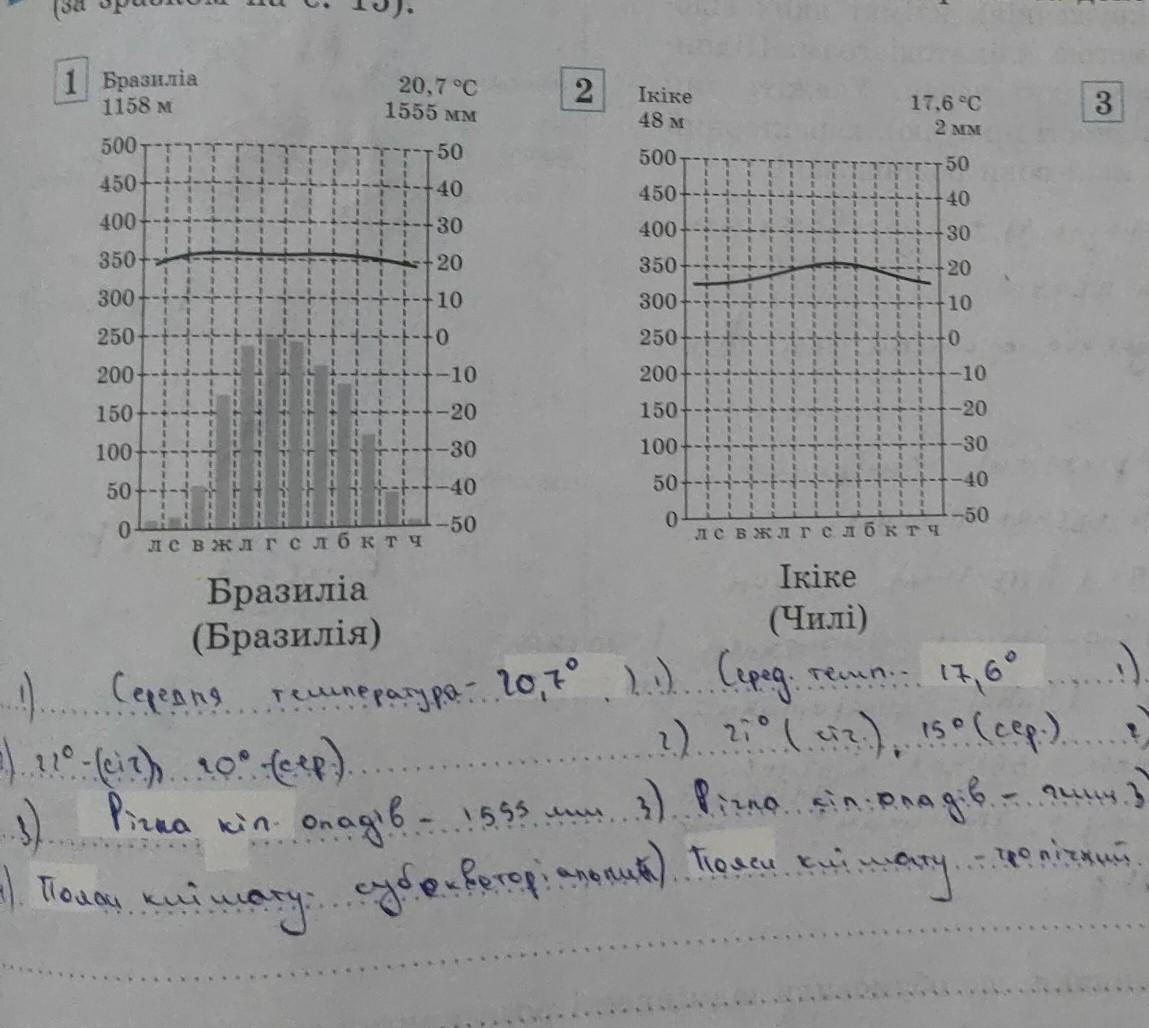 (за зразком на с. 15).
1 Бразиліа 20,7 °С
1158 м 1555 мм
500 50
450 40
400 30
350 20
300 10
250 0
200 –10
150 –20
100 –30
50 –40
0 –50
л с в ж л г с л б к т ч
Бразиліа
(Бразилія)
2 Ікіке 17,6 °С
48 м 2 мм
500 50
450 40
400 30
350 20
300 10
250 0
200 –10
150 –20
100 –30
50 –40
0 –50
л с в ж л г с л б к т ч
Ікіке
(Чилі)
3
1) Середня температура - 20,7°
22° -(січ), 20° -(сер.)
3) Річна кіл. опадів - 1555 мм
Пояси клімату - субекваторіальний
1) Серед. темп. - 17,6°
2) 21° (січ.), 15° (сер.)
3) Річна кіл. опадів - 2 мм
Пояси клімату - тропічний
1)
2)
3)